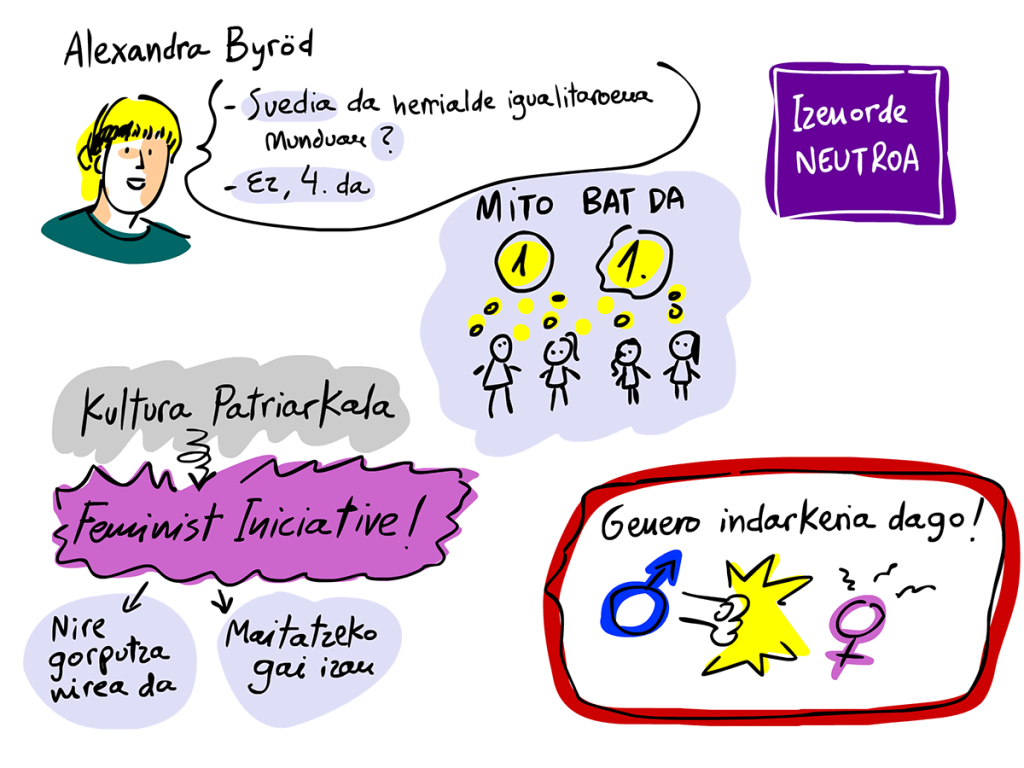 Alexandra Byröd
- Suedia da herrialde igualitaroena
munduan?
- Ez, 4. da
Izenorde
NEUTROA
MITO BAT DA
1 1.
Kultura Patriarkala
Feminist Iniciative!
Nire
gorputza
nirea da
Maitatzeko
gai izan
Genero indarkeria dago!